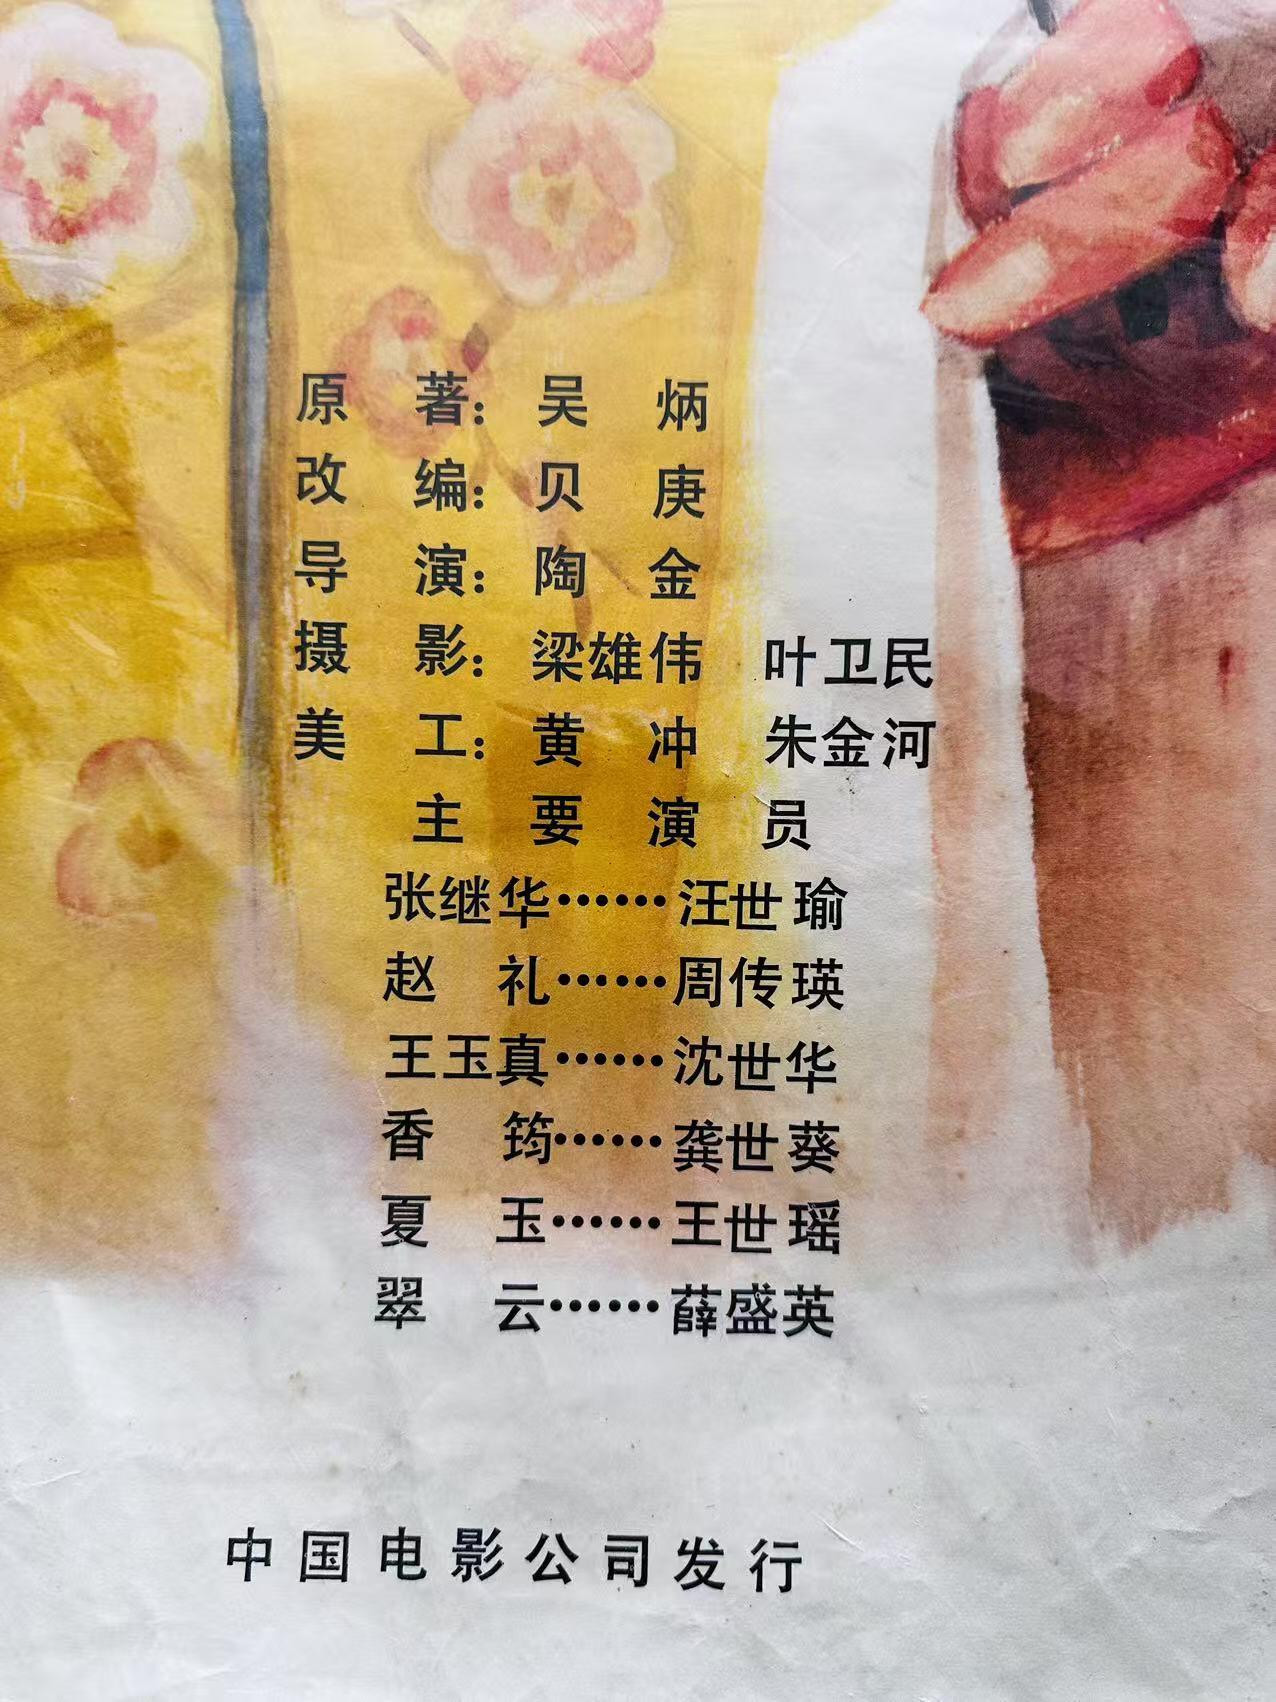 原 著：吴 炳
改 编：贝 庚
导 演：陶 金
摄 影：梁雄伟 叶卫民
美 工：黄 冲 朱金河
主 要 演 员
张继华……汪世瑜
赵 礼……周传瑛
王玉真……沈世华
香 筠……龚世葵
夏 玉……王世瑶
翠 云……薛盛英
中国电影公司发行